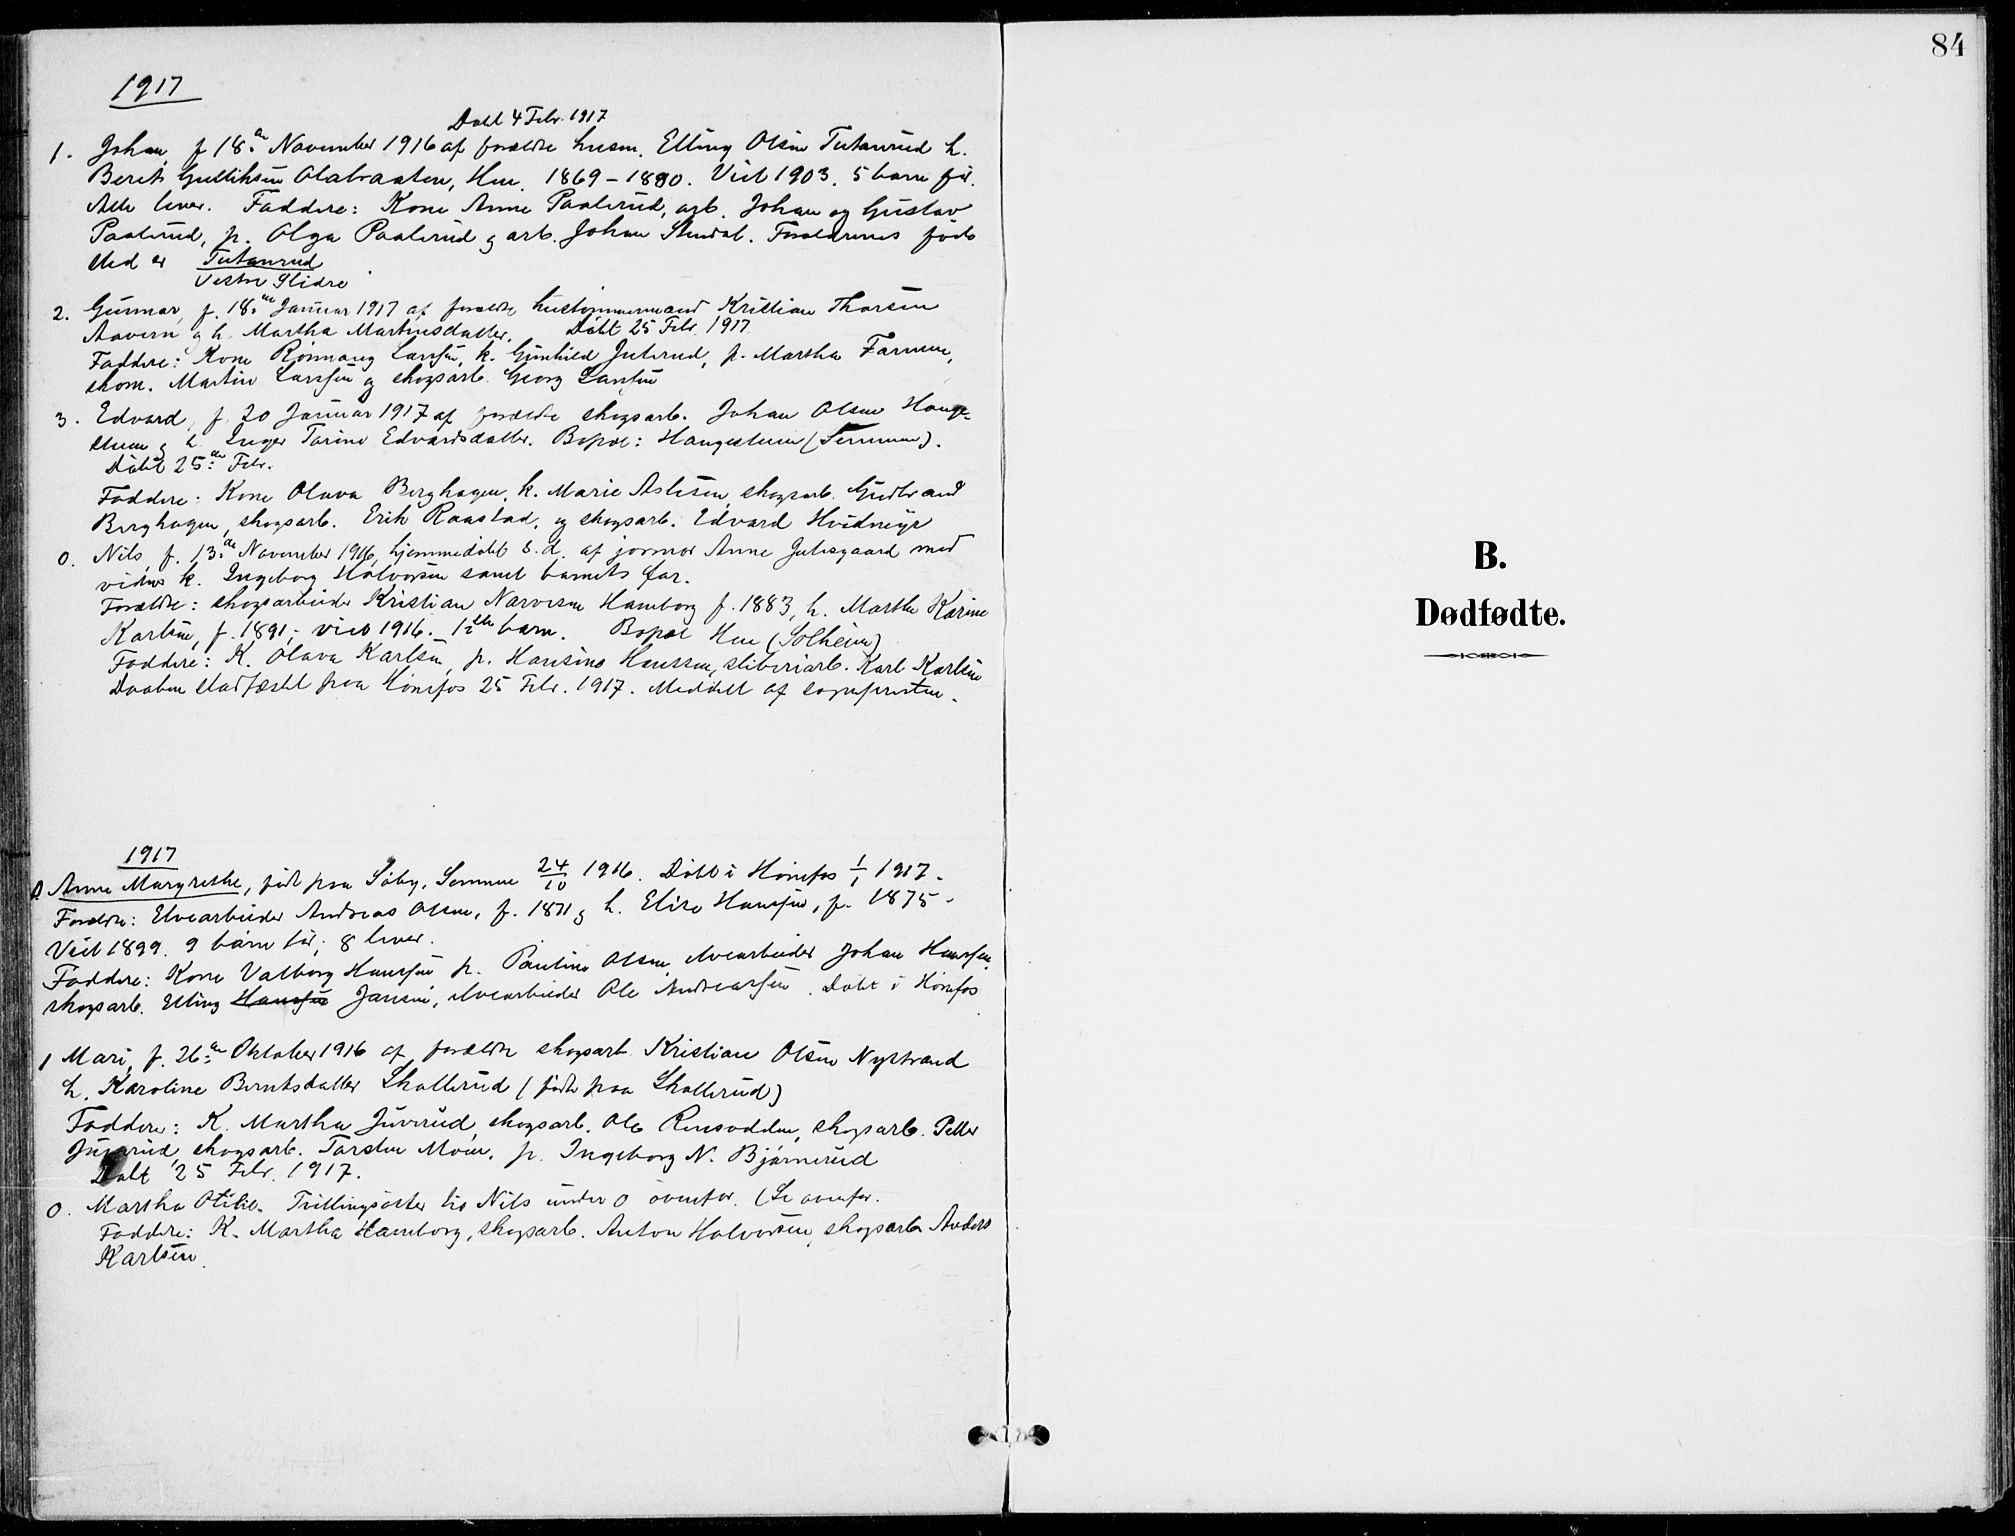 1917
Døbt 4 Febr. 1917
1. Johan, f 18de November 1916 af forældre husm. Elling Olsen Tutanrud h.
Berit Gulliksen Olabraaten, Hen. 1869 – 1880. Viet 1903. 5 barn før.
Alle lever. Faddere: Kone Anne Paalerud, arb. Johan og Gustav
Paalerud, p. Olga Paalerud og arb. Johan Stendal. Forældrenes føde
sted er Tutanrud
Vestre Slidre
2. Gunnar, f. 18de Januar 1917 af forældre hustømmermand Kristian Thorsen
Aavern og h. Martha Martinsdatter. Døbt 25 Febr. 1917
Faddere: Kone Rønnaug Larssen, k. Gunhild Juterud, p. Martha Farmen,
skom. Martin Larssen og skogsarb. Georg Larssen
3. Edvard, f 20 Januar 1917 af forældre skogsarb. Johan Olsen Hauge-
stuen og h. Inger Tarine Edvardsdatter. Bopæl: Haugestuen (Semmen).
Døbt 25de Febr.
Faddere: Kone Olava Berghagen, k. Marie Aslesen, skogsarb. Gudbrand
Berghagen, skogsarb. Erik Raastad, og skogsarb. Edvard Hvidmyr
0. Nils, f. 13de November 1916, hjemmedøbt s. d. af jormor Anne Julsgaard med
vidner k. Ingeborg Halvorsen samt barnets far.
Forældre: skogsarbeider Kristian Narvesen Hamborg f. 1883, h. Marthe Karine
Karlsen, f. 1891; viet 1916. 1ste barn. Bopæl Hen (Solheim)
Faddere: K. Olava Karlsen, p. Hansine Hanssen, sliberiarb. Karl Karlsen
Daaben stadfæstet paa Hønefos 25 Febr. 1917. Meddelt af sognepresten.
1917
0 Anne Margrethe, født paa Søby, Semmen 24/10 1916. Døbt i Hønefos 1/1 1917.
Forældre: Elvearbeider Andreas Olsen, f. 1871 og h. Elise Hanssen, f. 1875.
Viet 1899. 9 børn før; 8 lever.
Faddere: Kone Valborg Hanssen p. Pauline Olsen, elvearbeider Johan Hanssen,
skogsarb. Elling Hanssen Jansen, elvearbeider Ole Andreassen. Døbt i Hønefos
1 Mari, f. 26de Oktober 1916 af forældre skogsarb. Kristian Olsen Nystrand
h. Karoline Berntsdatter Skollerud (født paa Skollerud)
Faddere: K. Martha Juverud, skogsarb. Ole Rensvodden, skogsarb. Petter
Juverud, skogsarb. Torsten Moen, p. Ingeborg N. Bjørnerud
Døbt 25 Febr. 1917.
0. Martha Otilie. Tvillingsøster til Nils under 0 ovenfor. (Se ovenfor.
Faddere: K. Martha Hamborg, skogsarb. Anton Halvorsen, skogsarb. Anders
Karlsen.
84
B.
Dødfødte.